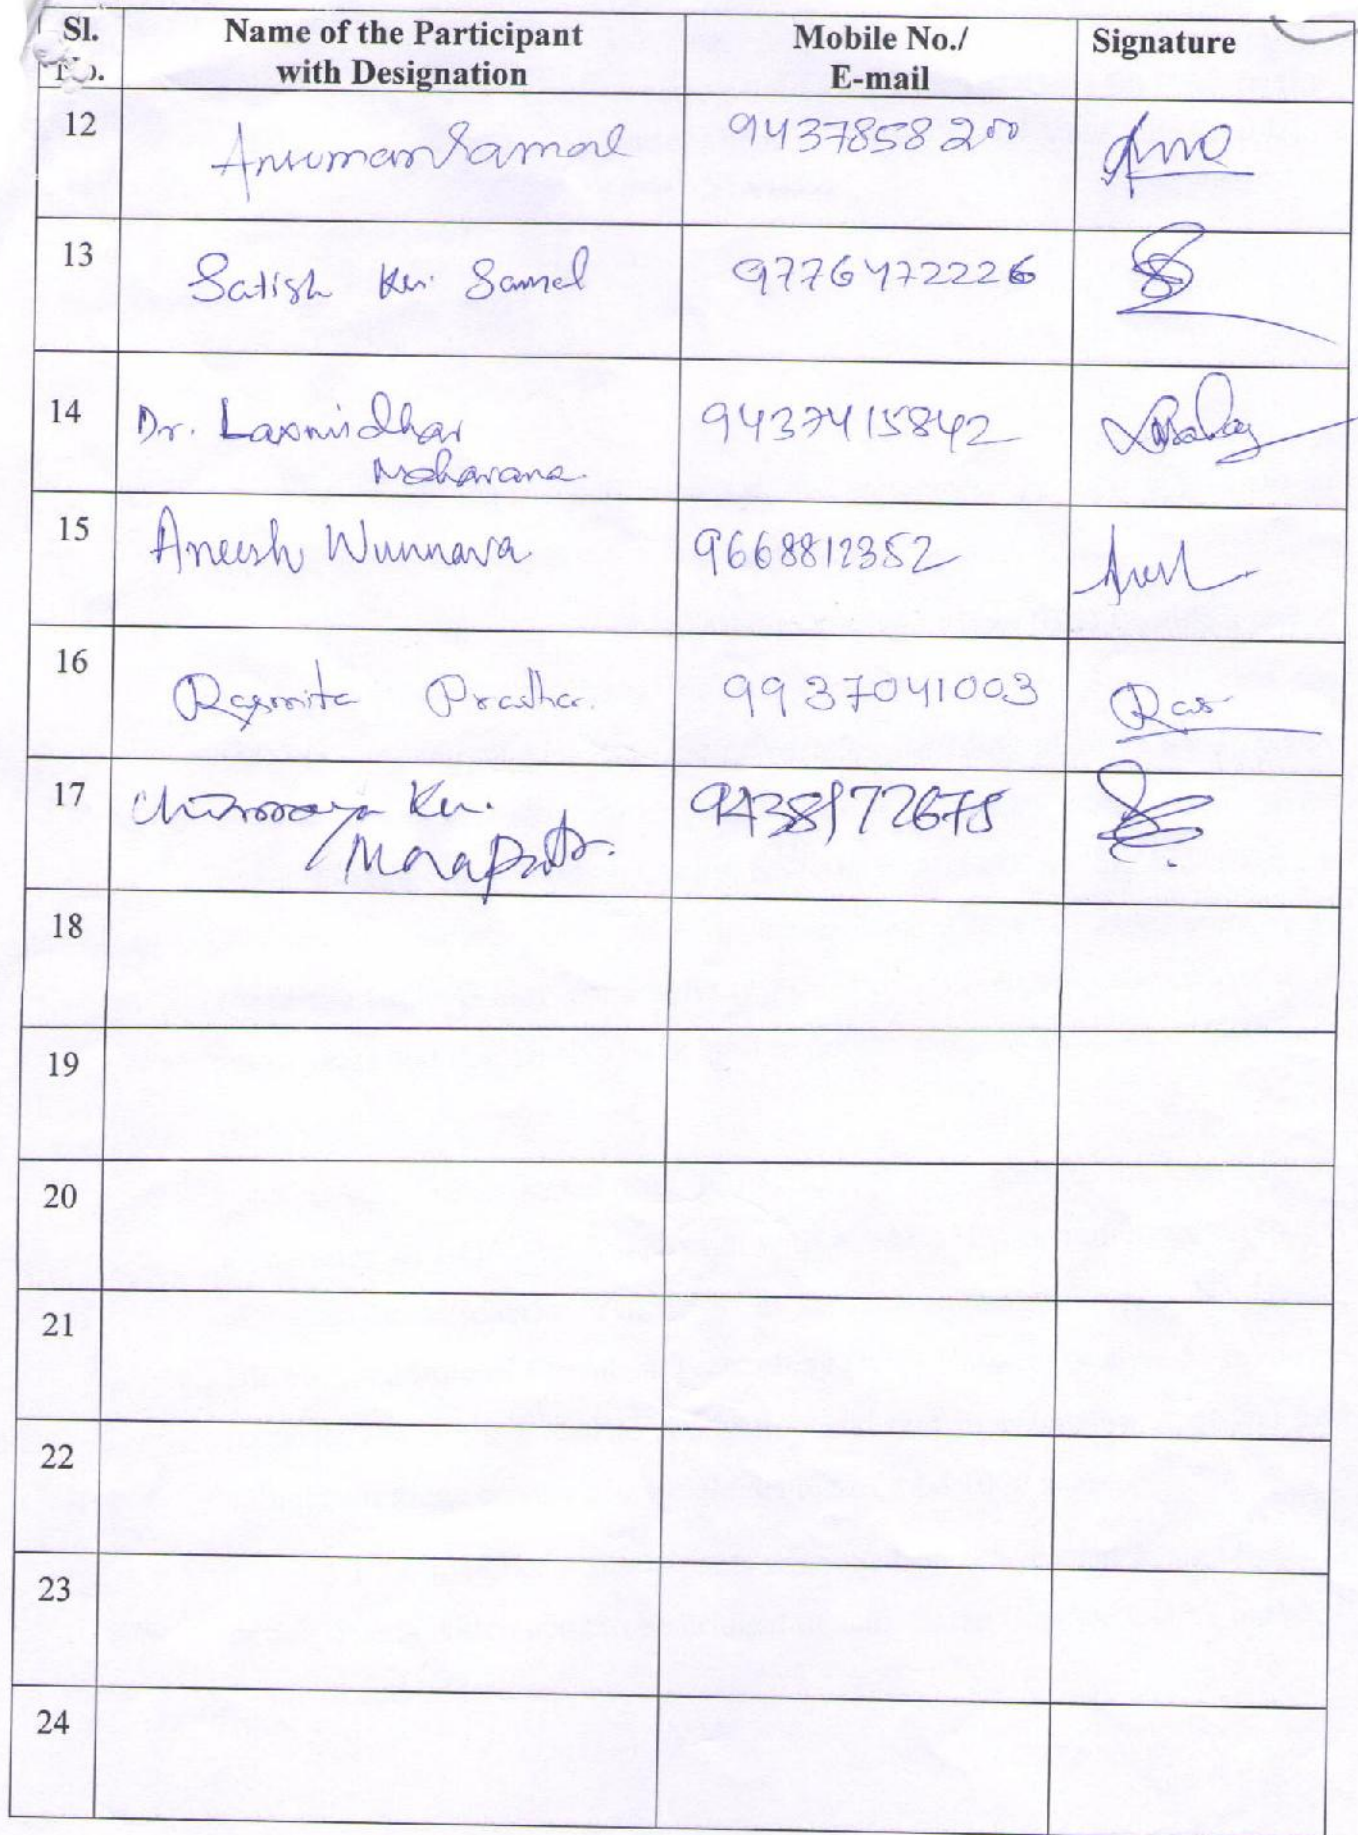 Sl. No.
Name of the Participant with Designation
Mobile No./ E-mail
Signature
12 Ansuman Samal 9437858200
13 Satish Kr. Samal 9776472226
14 Dr. Laxmidhar 9437415842
Maharana
15 Aneesh Wunnava 9668812352
16 Rasmita Pradhan. 9937041003 Ras
17 Chinmaya Kr. 9438172675
Mohapatra.
18
19
20
21
22
23
24